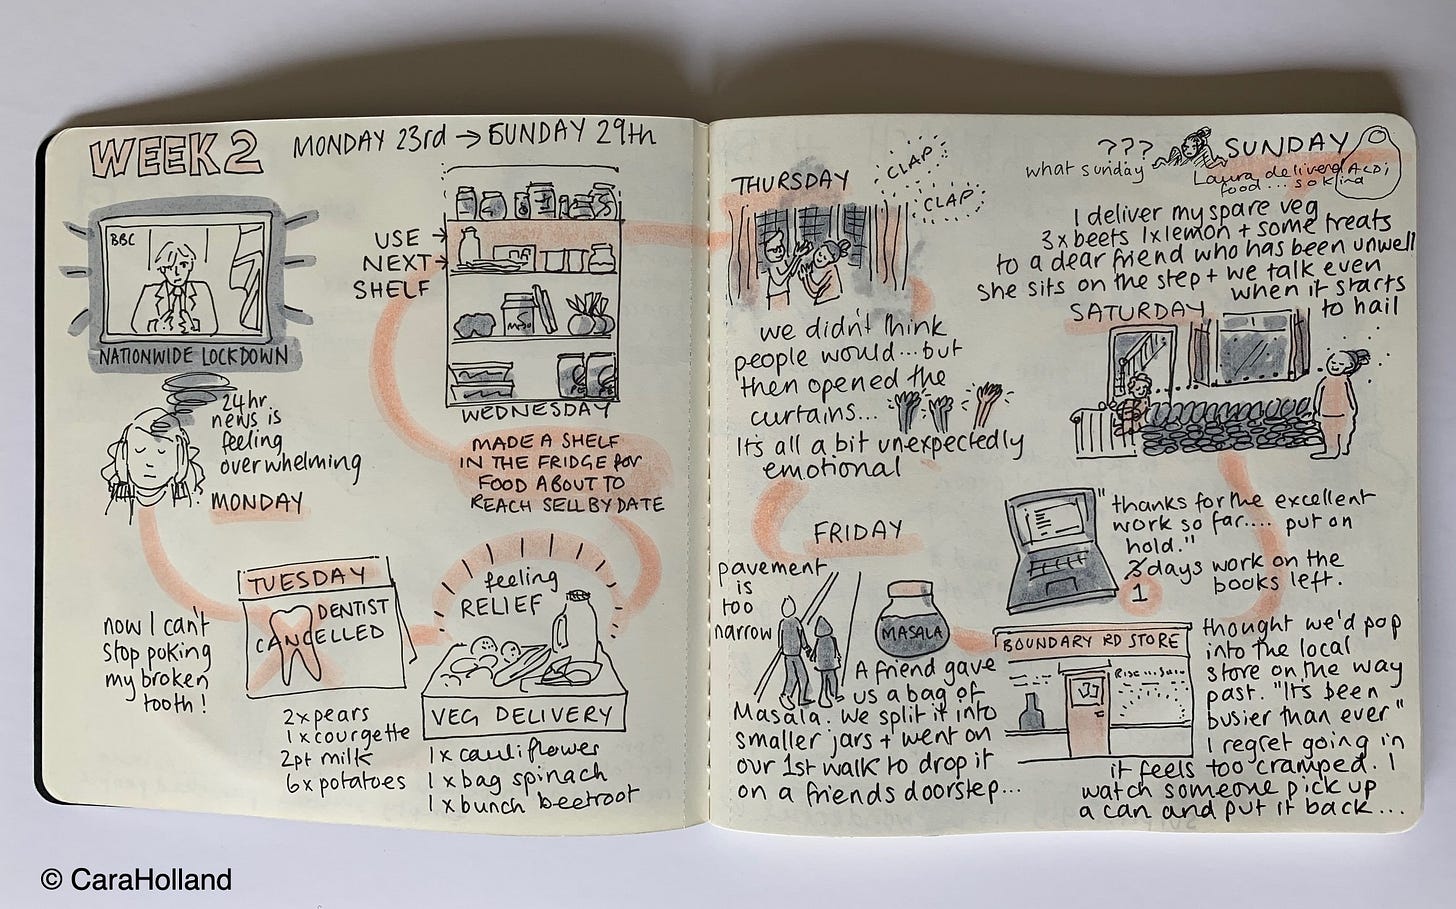 WEEK 2
MONDAY 23rd → SUNDAY 29th
BBC
NATIONWIDE LOCKDOWN
24hr
news is
feeling
overwhelming
MONDAY
TUESDAY
DENTIST
CANCELLED
now I can't
stop poking
my broken
tooth!
USE →
NEXT →
SHELF
MISO
WEDNESDAY
MADE A SHELF
IN THE FRIDGE for
FOOD ABOUT TO
REACH SELL BY DATE
feeling
RELIEF
VEG DELIVERY
2 x pears
1 x courgette
2pt milk
6 x potatoes
1 x cauliflower
1 x bag spinach
1 x bunch beetroot
THURSDAY
CLAP
CLAP
we didn't think
people would... but
then opened the
curtains...
It's all a bit unexpectedly
emotional
FRIDAY
pavement
is
too
narrow
MASALA
A friend gave
us a bag of
Masala. We split it into
smaller jars + went on
our 1st walk to drop it
on a friends doorstep...
BOUNDARY RD STORE
thought we'd pop
into the local
store on the way
past. "It's been
busier than ever"
I regret going in
it feels too cramped. I
watch someone pick up
a can and put it back...
"thanks for the excellent
work so far.... put on
hold."
3 days work on the
1
books left.
SATURDAY
??? SUNDAY
what sunday
Laura delivered ALDI
food... so kind
I deliver my spare veg
3 x beets 1 x lemon + some treats
to a dear friend who has been unwell
she sits on the step + we talk even
when it starts
to hail
© CaraHolland